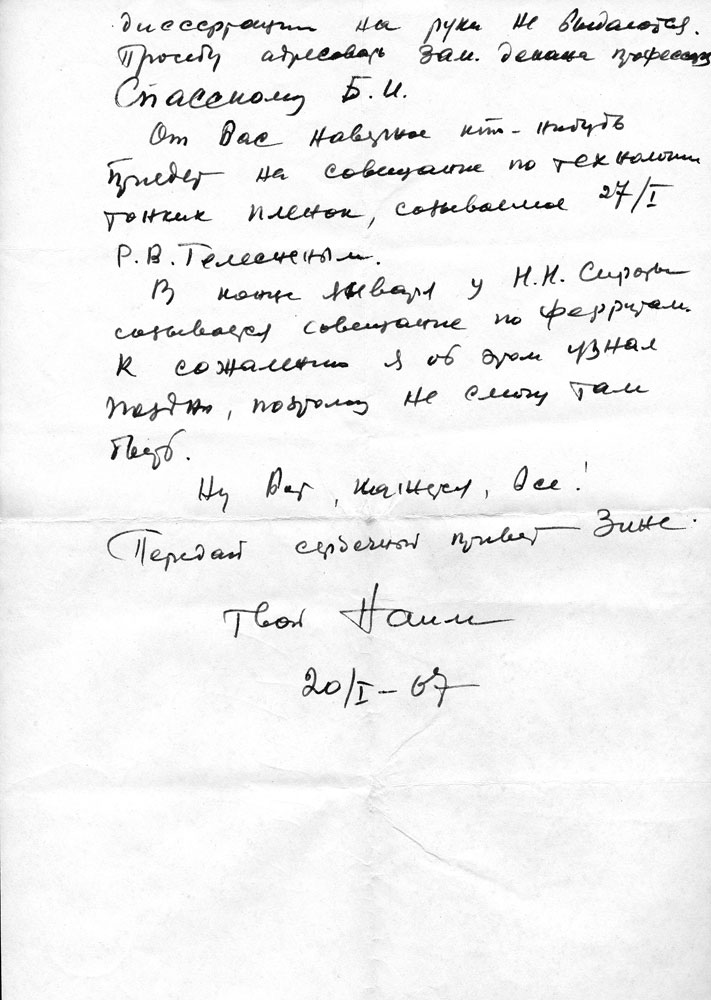 диссертации на руки не выдаются.
Просьбу адресовать зам. декана профессору
Спасскому Б.И.
От Вас наверное кто-нибудь
приедет на совещание по технологии
тонких пленок, созываемое 27/I
Р.В. Телесниным.
В конце января у Н.Н. Сироты
созывается совещание по ферритам.
К сожалению я об этом узнал
поздно, поэтому не смогу там
быть.
Ну вот, кажется, все!
Передай сердечный привет Зине.
Твой Наим
20/I-67